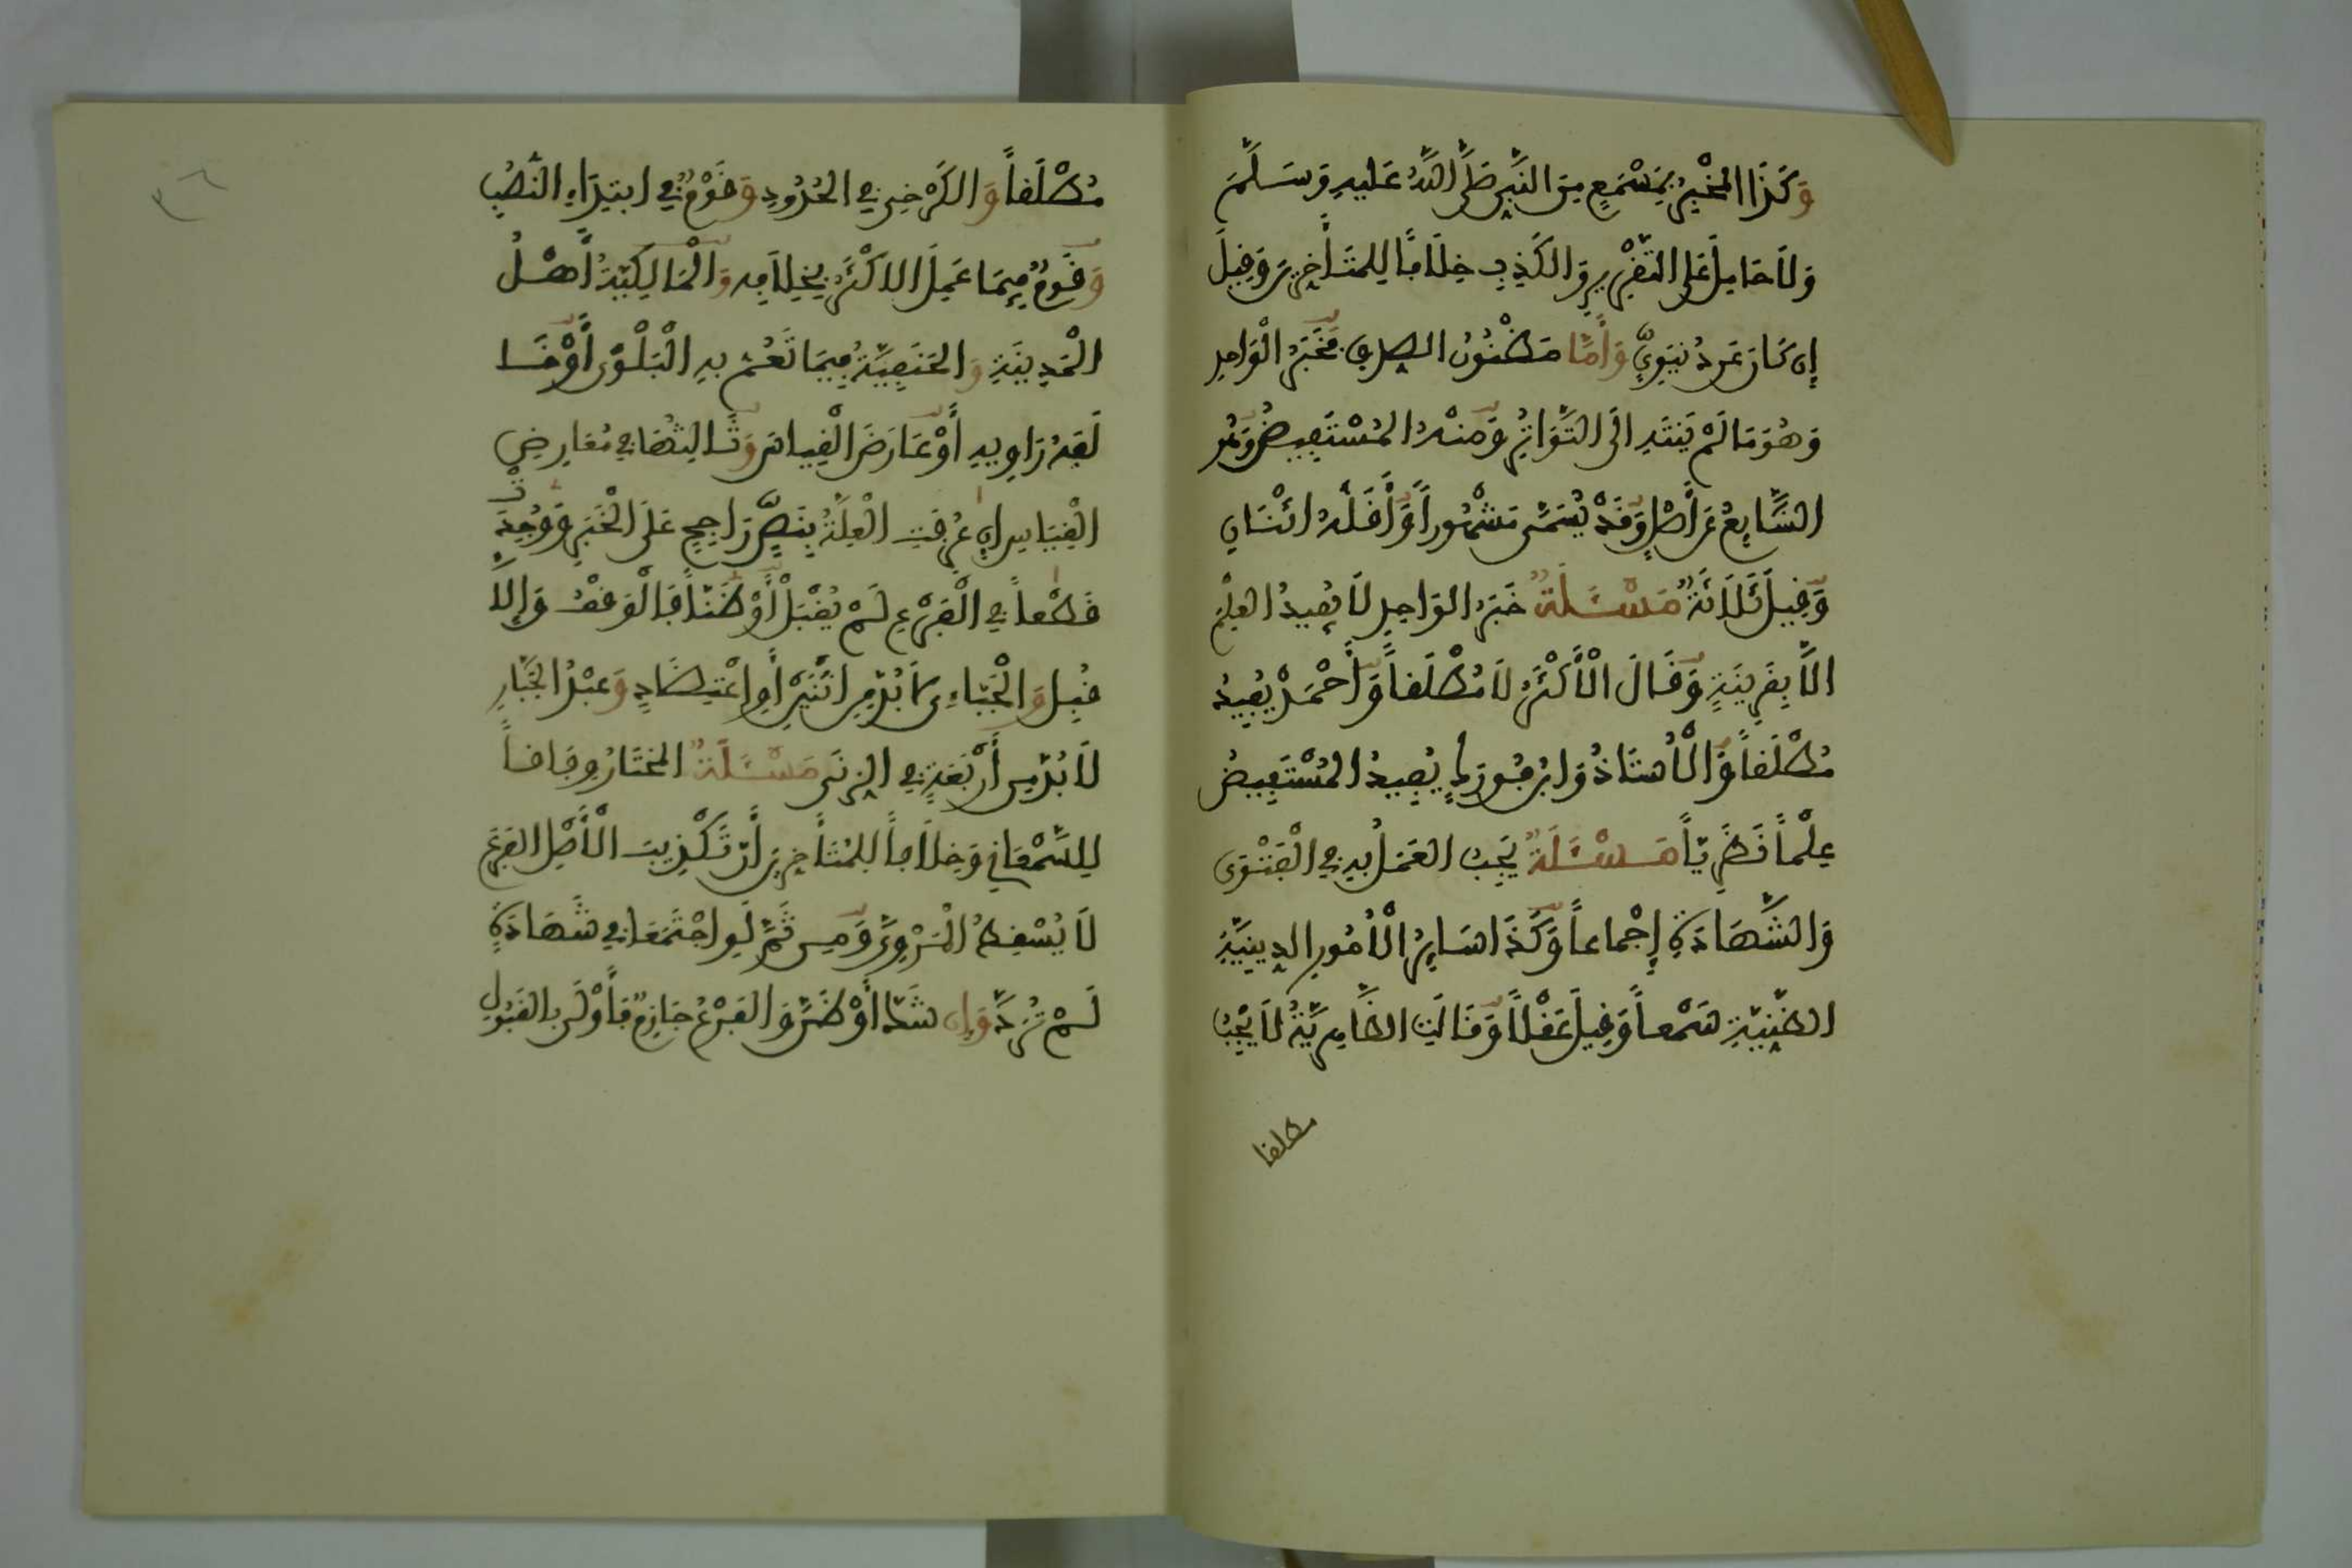 وَكَذَا المُخْبِرُ بِمَسْمَعٍ مِنَ النَّبِيِّ صَلَّى اللهُ عَلَيهِ وَسَلَّمَ
وَلَا حَامِلَ عَلَى التَّقْرِيرِ وَالكَذِبِ خِلَافًا لِلمُتَأَخِّرِينَ وَقِيلَ
إِن كَانَ عَن دُنيَوِيٍّ وَأَمَّا مَظْنُونُ الصِّدْقِ فَخَبَرُ الْوَاحِدِ
وَهُوَ مَا لَمْ يَنتَهِ الَى التَّوَاتُرِ وَمِنْهُ المُسْتَفِيضُ وَهُوَ
الشَّايِعُ عَن أَصْلٍ وَقَدْ يُسَمَّى مَشْهُوراً وَأَقَلُّهُ اثْنَانِ
وَقِيلَ ثَلَاثَةٌ مَسْـَٔلَةٌ خَبَرُ الوَاحِدِ لَا يُفِيدُ العِلْمَ
الَّا بِقَرِينَةٍ وَقَالَ الْأَكْثَرُ لَا مُطْلَقاً وَأَحْمَدُ يُفِيدُ
مُطْلَقاً وَالْأُسْتَاذُ وَابنُ فُورَكٍ يُفِيدُ المُسْتَفِيضُ
عِلْماً نَظَرِيّاً مَسْـَٔلَةٌ يَجِبُ العَمَلُ بِهِ فِي الْفَتْوَى
وَالشَّهَادَةِ إِجْمَاعاً وَكَذَا سَايِرُ الْأُمُورِ الدِينِيَّةِ
الظَّنِّيَّةِ سَمْعاً وَقِيلَ عَقْلاً وَقَالَتِ الظَّاهِرِيَّةُ لَا يَجِبُ
مطلقا
٣٦
مُطْلَقاً وَالكَرْخِي فِي الحُدُودِ وَقَوْمٌ فِي ابتِدَاءِ النُّصُبِ
وَقَوْمٌ فِيمَا عَمِلَ الاكْثَرُ بِخِلَافِهِ وَالْمَالِكِيَّةُ أَهْلُ
الْمَدِينَةِ وَالحَنَفِيَّةُ فِيمَا تَعُمُّ بِهِ الْبَلْوَى أَوْ خَا
لَفَهُ رَاوِيهِ أَوْ عَارَضَ الْقِيَاسَ وَثَالِثُهَا فِي مُعَارِضِ
الْقِيَاسِ إِن عُرِفَتِ الْعِلَّةُ بِنَصٍّ رَاجِحٍ عَلَى الْخَبَرِ وَوُجِدَتْ
قَطْعاً فِي الْفَرْعِ لَمْ يُقْبَلْ أَوْ ظَنّاً فَالْوَقْفُ وَإِلَّا
قُبِلَ وَالْجُبَّاءِي لَا بُدَّ مِنِ اثْنَيْنِ أَوِ اعْتِضَادٍ وَعَبْدُ الجَبَّارِ
لَا بُدَّ مِن أَرْبَعَةٍ فِي الزِنَى مَسْـَٔلَةٌ المُخْتَارُ وِفَاقاً
لِلسَّمْعَانِي وَخِلَافاً لِلمُتَأَخِّرِينَ أَنَّ تَكْذِيبَ الْأَصْلِ الفَرْعَ
لَا يُسْقِطُ الْمَرْوِيَّ وَمِن ثَمَّ لَوِ اجْتَمَعَا فِي شَهَادَةٍ
لَمْ تُرَدَّ وَإِن شَكَّ أَوْ ظَنَّ وَالفَرْعُ جَازِمٌ فَأَوْلَى بِالقَبُولِ